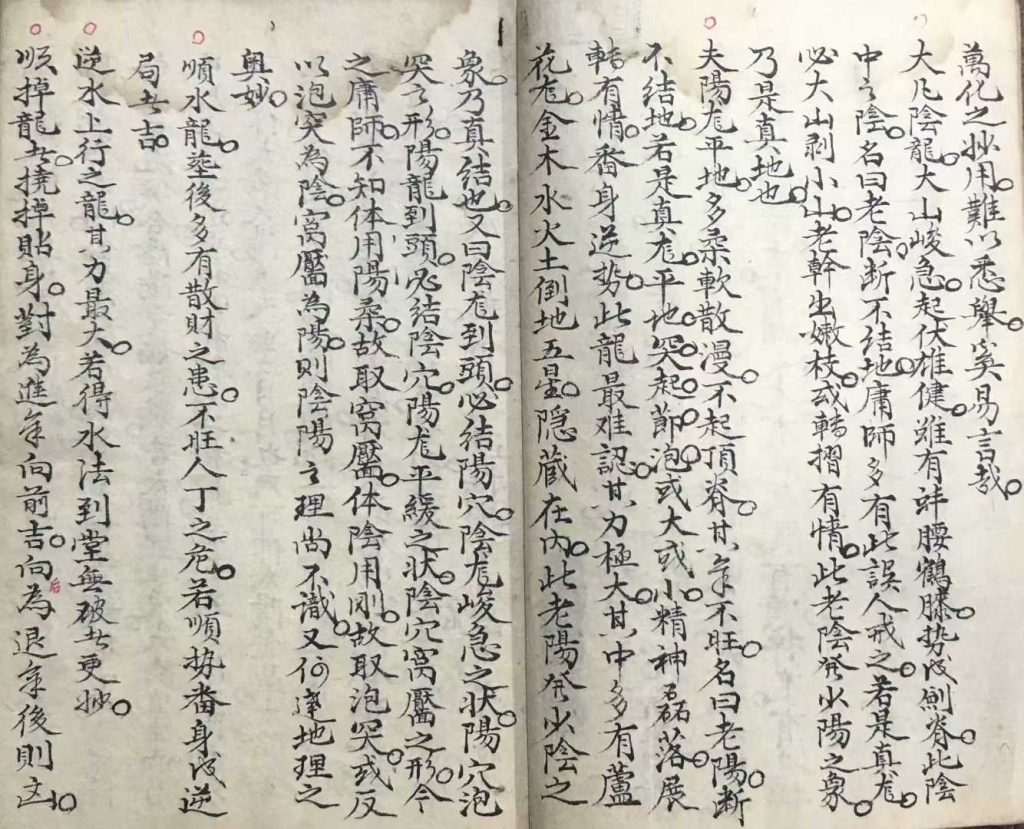 萬化之妙用難以悉舉奚易言哉
大凡陰龍大山峻急起伏雄健雖有蜂腰鶴膝势成劍脊此陰
中之陰名曰老陰断不结地庸師多有此誤人戒之若是真尨
必大山剥小山老幹生嫩枝或轉摺有情此老陰癸少陽之象
乃是真地也
夫陽尨平地多柔軟散漫不起頂脊其氣不旺名曰老陽断
不结地若是真尨平地突起節泡或大或小精神磊落展
轉有情番身逆势此龍最难認其力極大其中多有蘆
花尨金木水火土倒地五星隐藏在内此老陽癸少陰之
象乃真结也又曰陰尨到頭必结陽穴陰尨峻急之状陽穴泡
突之形陽龍到頭必结陰穴陽尨平緩之状陰穴窩靨之形今
之庸師不知体用陽柔故取窩靨体陰用刚故取泡突或反
以泡突為陰窩靨為陽則陰陽之理尚不識又何達地理之
奥妙
順水龍塟後多有散財之患不旺人丁之危若順势番身成逆
局者吉
逆水上行之龍其力最大若得水法到堂無破者更妙
順掉龍者撓掉貼身對為進氣向前吉向后為退氣後則凶